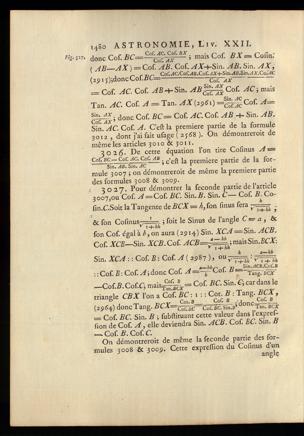 1480 ASTRONOMIE, LIV. XXII.
Fig. 527.
donc Cos. BC = Cos. AC. Cos. BX / Cos. AX ; mais Cos. BX = Cosin.
(AB—AX) = Cos. AB. Cos. AX + Sin. AB. Sin. AX,
(2915); donc Cos. BC = Cos. AC. Cos. AB. Cos. AX + Sin. AB. Sin. AX. Cos. AC / Cos. AX
= Cos. AC. Cos. AB + Sin. AB Sin. AX / Cos. AX Cos. AC ; mais
Tan. AC. Cos. A = Tan. AX (2961) = Sin. AC / Cos. AC Cos. A =
Sin. AX / Cos. AX ; donc Cos. BC = Cos. AC. Cos. AB + Sin. AB.
Sin. AC. Cos. A. C'est la premiere partie de la formule
3012, dont j'ai fait usage (2568). On démontreroit de
même les articles 3010 & 3011.
3026. De cette équation l'on tire Cosinus A =
Cos. BC — Cos. AC. Cos. AB / Sin. AB. Sin. AC ; c'est la premiere partie de la for-
mule 3007 ; on démontreroit de même la premiere partie
des formules 3008 & 3009.
3027. Pour démontrer la seconde partie de l'article
3007, ou Cos. A = Cos. BC. Sin. B. Sin. C — Cos. B. Co-
sin. C. Soit la Tangente de BCX = b, son sinus sera b / √1+bb ,
& son Cosinus 1 / √1+bb ; soit le Sinus de l'angle C = a, &
son Cos. égal à h, on aura (2914) Sin. XCA = Sin. ACB.
Cos. XCB — Sin. XCB. Cos. ACB = a—bh / √1+bb ; mais Sin. BCX:
Sin. XCA :: Cos. B : Cos. A (2987), ou b / √1+bb : a—bh / √1+bb
:: Cos. B : Cos. A ; donc Cos. A = a—bh / b Cos. B = Sin. ACB. Cos. B / Tang. BCX
— Cos. B. Cos. C, mais Cos. B / Tan. BCX = Cos. BC. Sin. B, car dans le
triangle CBX l'on a Cos. BC : 1 :: Cot. B : Tang. BCX,
(2964) donc Tang. BCX = Cot. B / Cos. BC = Cos. B / Cos. BC. Sin. B, donc Cos. B / Tan. BCX
= Cos. BC. Sin. B ; substituant cette valeur dans l'expres-
sion de Cos. A, elle deviendra Sin. ACB. Cos. BC. Sin. B
— Cos. B. Cos. C.
On démontreroit de même la seconde partie des for-
mules 3008 & 3009. Cette expression du Cosinus d'un
angle